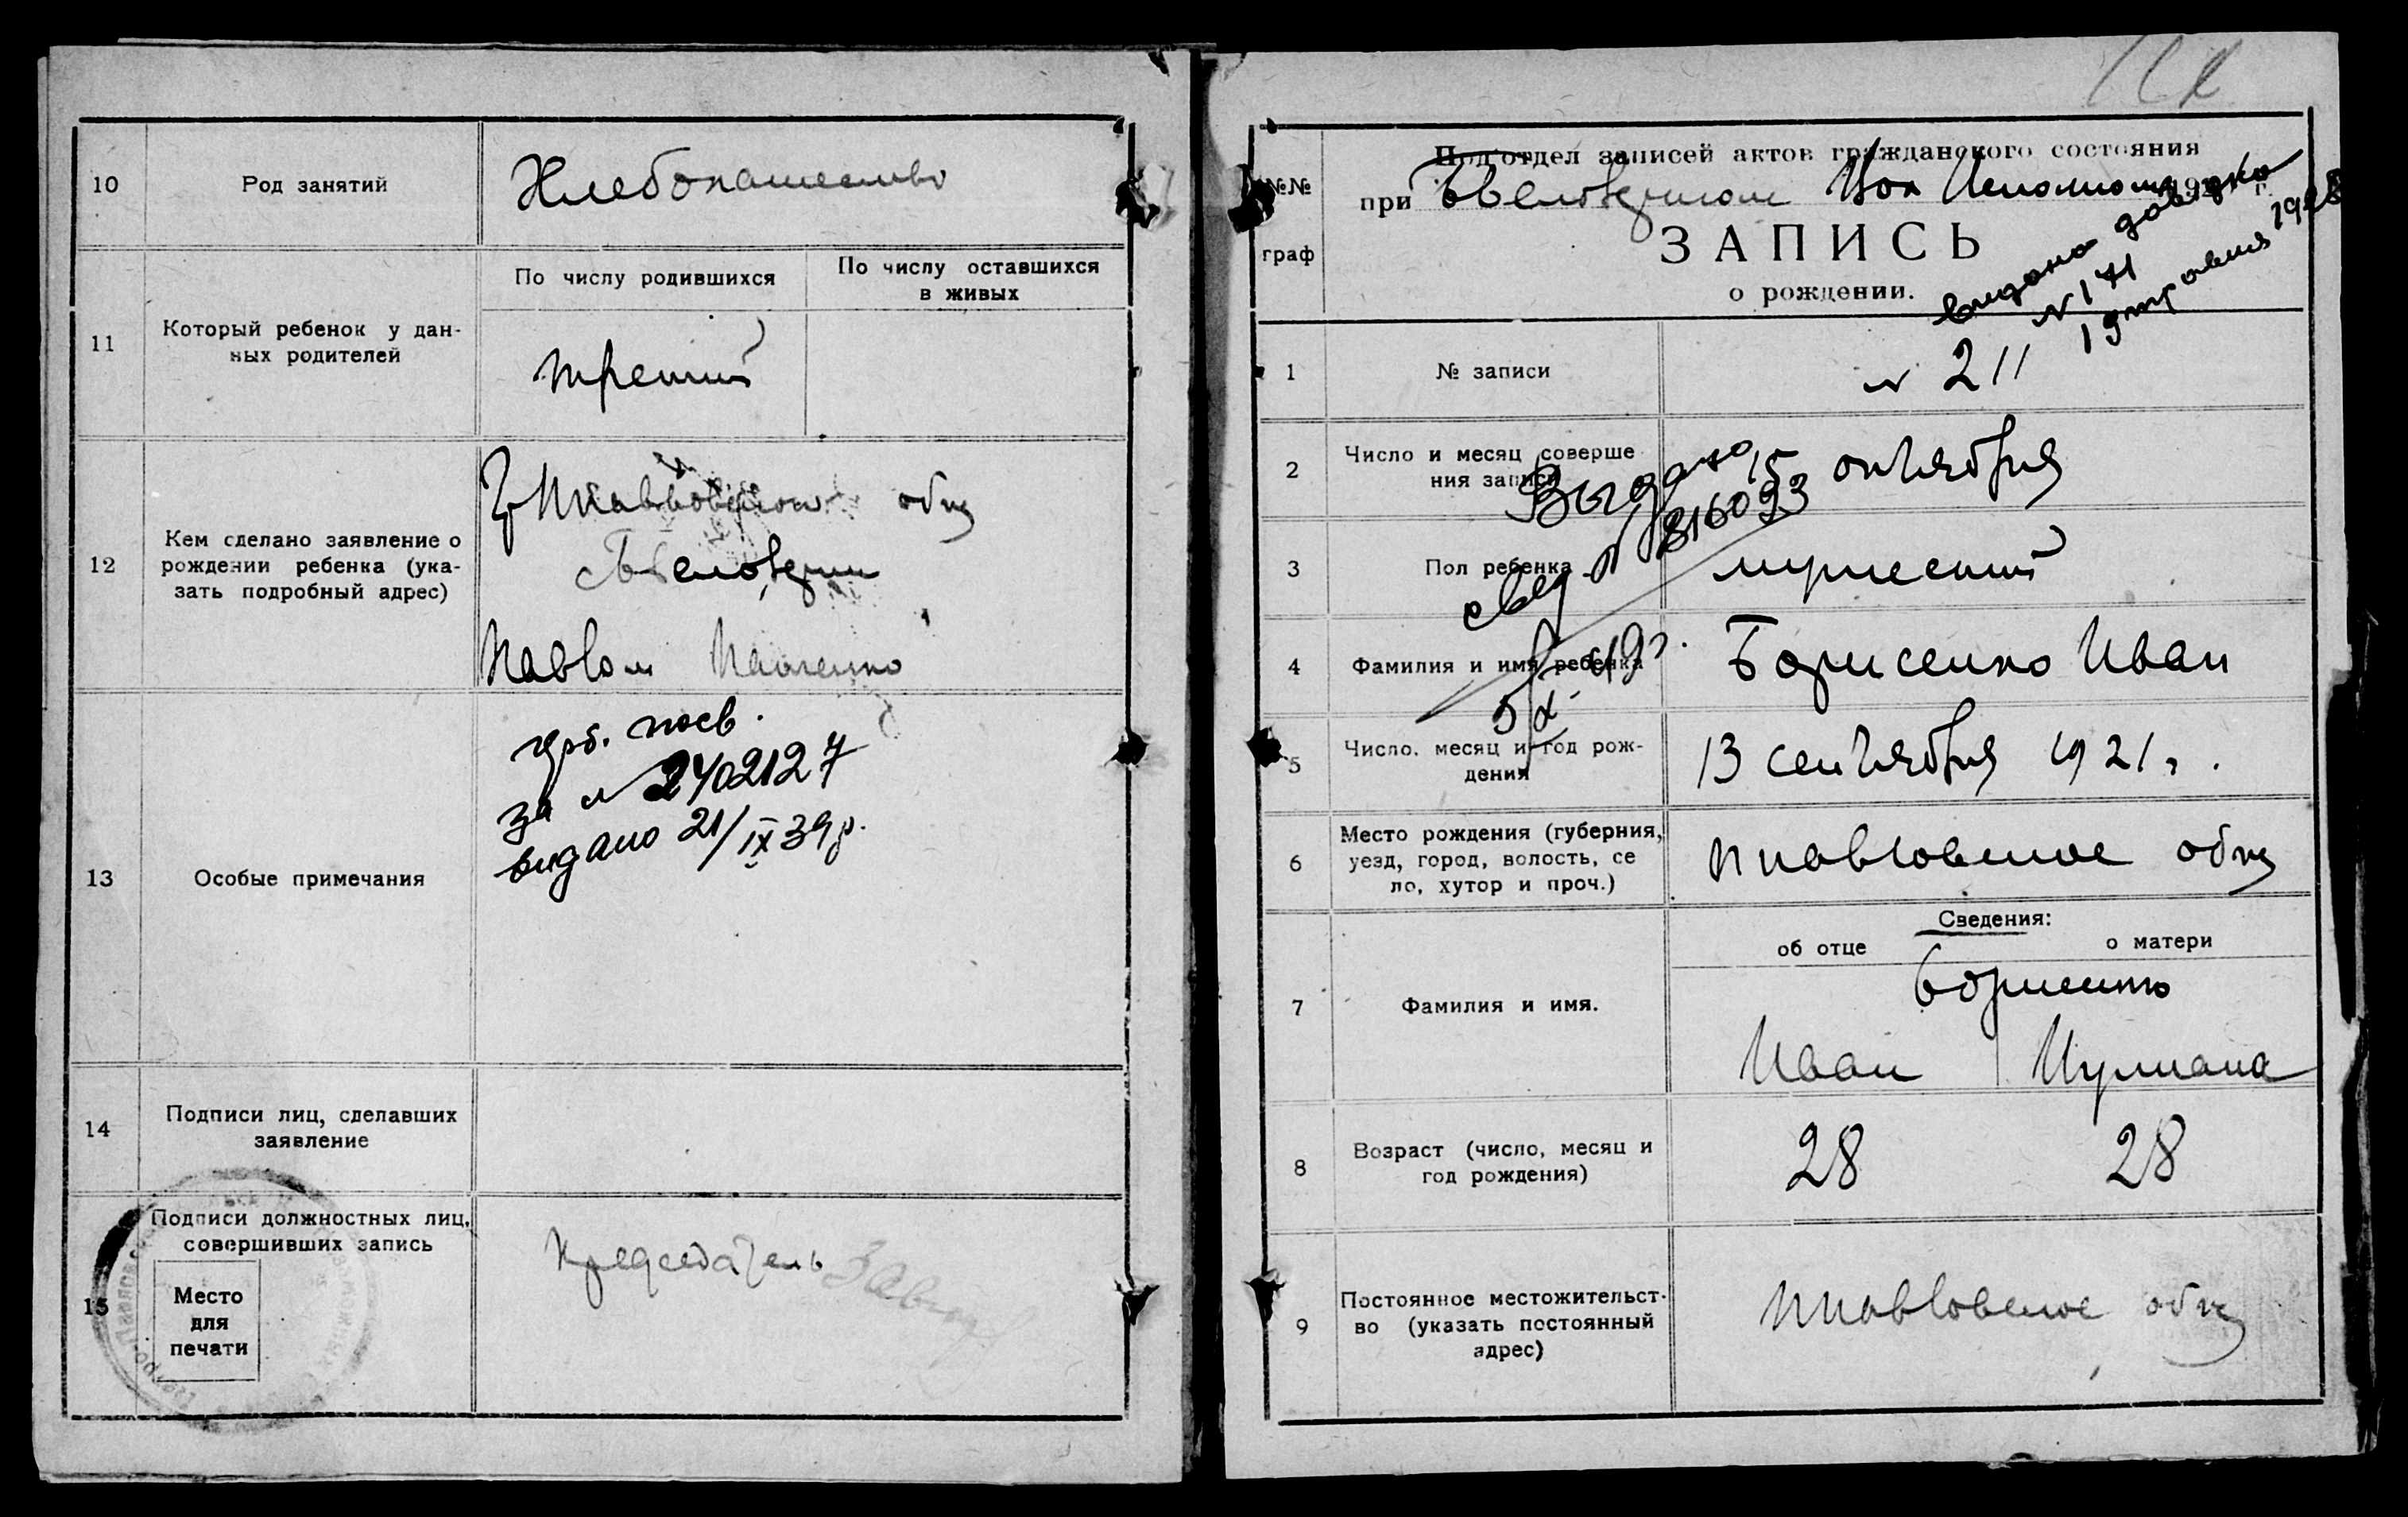 10
Род занятий
Хлебопашество
11
Который ребенок у дан-
ных родителей
По числу родившихся
По числу оставшихся
в живых
третий
12
Кем сделано заявление о
рождении ребенка (ука-
зать подробный адрес)
общ
Павлом
13
Особые примечания
за № 2402127
видано 21/IX 39р.
14
Подписи лиц, сделавших
заявление
15
Подписи должностных лиц,
совершивших запись
Место
для
печати
Председатель
№№
граф
Под'отдел записей актов гражданского состояния
при Вол Исполкоме 192 г.
ЗАПИСЬ
о рождении.
видана довідка
№ 171
19 травня 1928
1
№ записи
№ 211
2
Число и месяц соверше
ния записи
15 октября
Выдано
свид. № 816093
5/X-49г.
3
Пол ребенка
мужеский
4
Фамилия и имя ребенка
Борисенко Иван
5
Число. месяц и год рож-
дения
13 сентября 1921 г.
6
Место рождения (губерния,
уезд, город, волость, се
ло, хутор и проч.)
общ
Сведения:
об отце
о матери
7
Фамилия и имя.
Борисенко
Иван
Иулиана
8
Возраст (число, месяц и
год рождения)
28
28
9
Постоянное местожительст-
во (указать постоянный
адрес)
общ